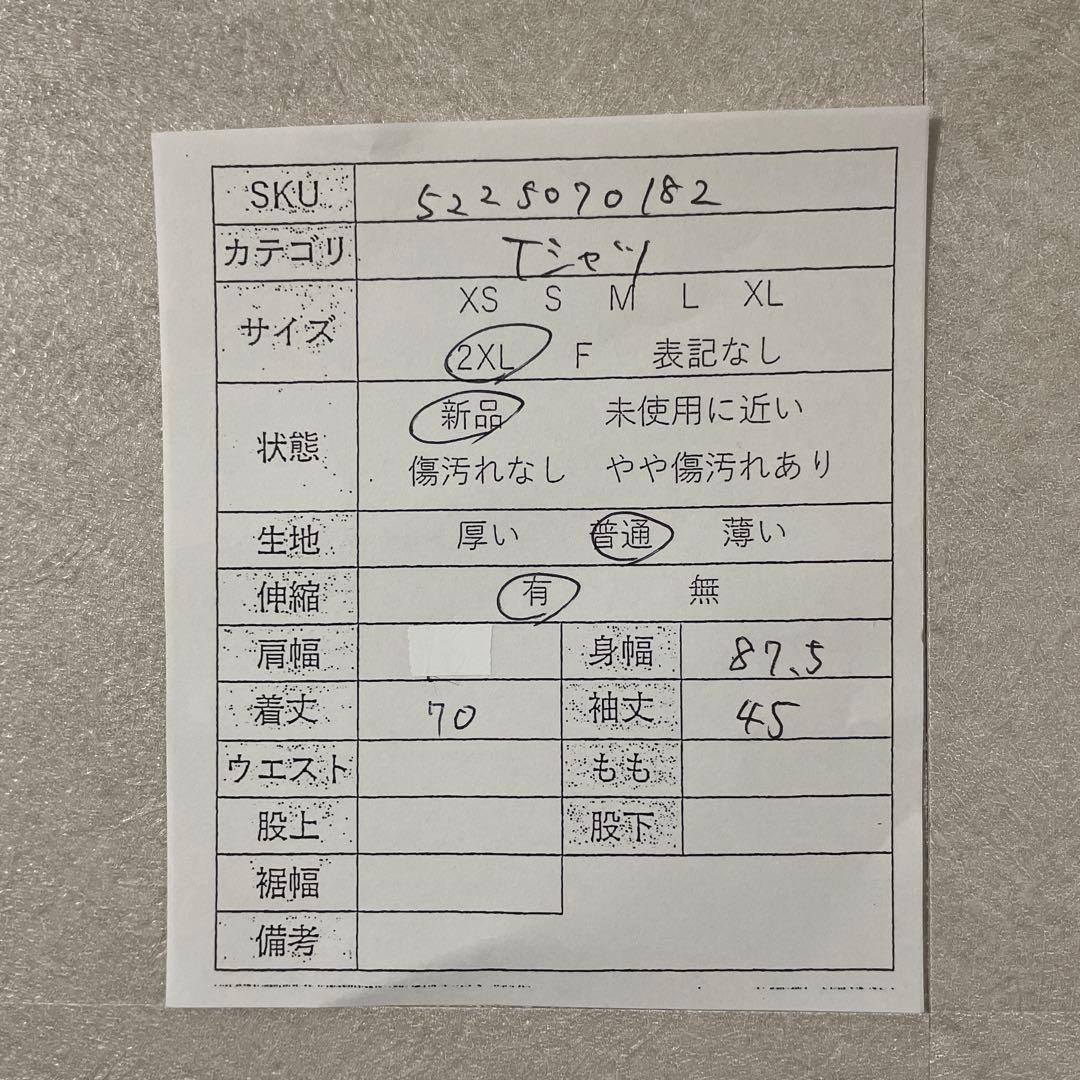 SKU 5225070182
カテゴリ Tシャツ
サイズ XS S M L XL
2XL F 表記なし
状態 新品 未使用に近い
傷汚れなし やや傷汚れあり
生地 厚い 普通 薄い
伸縮 有 無
肩幅 身幅 87.5
着丈 70 袖丈 45
ウエスト もも
股上 股下
裾幅
備考